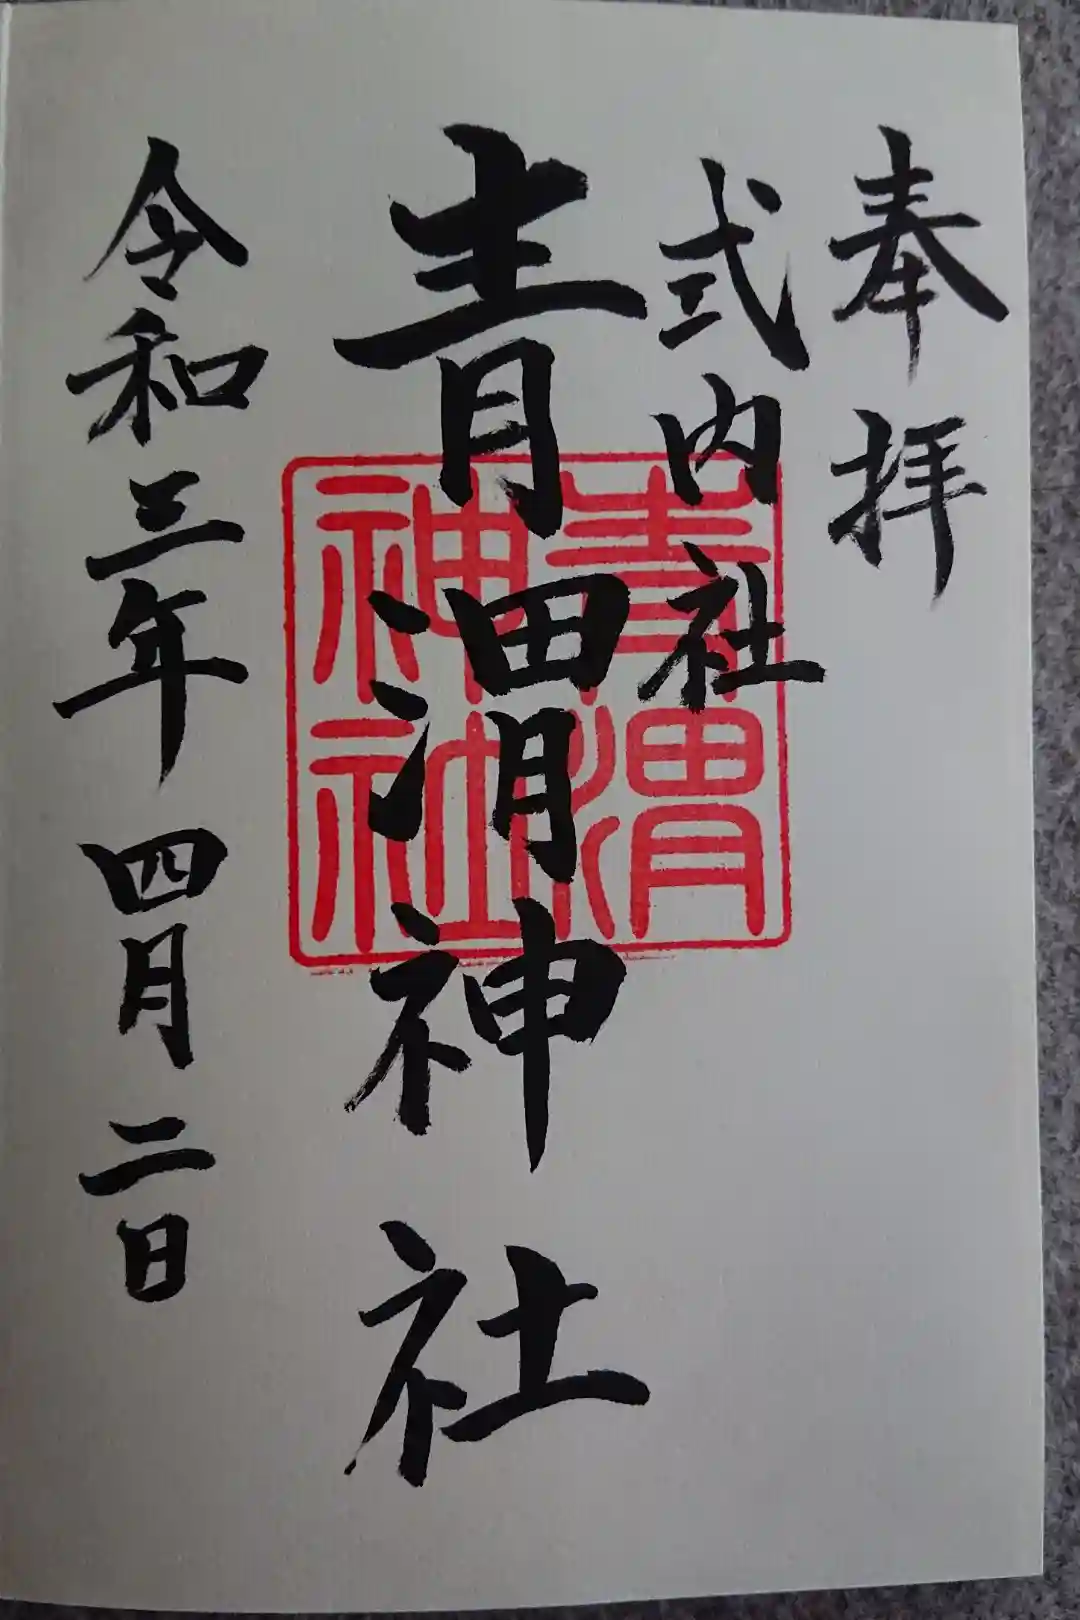 奉拝
式内社
青渭神社
令和三年四月二日
青渭神社